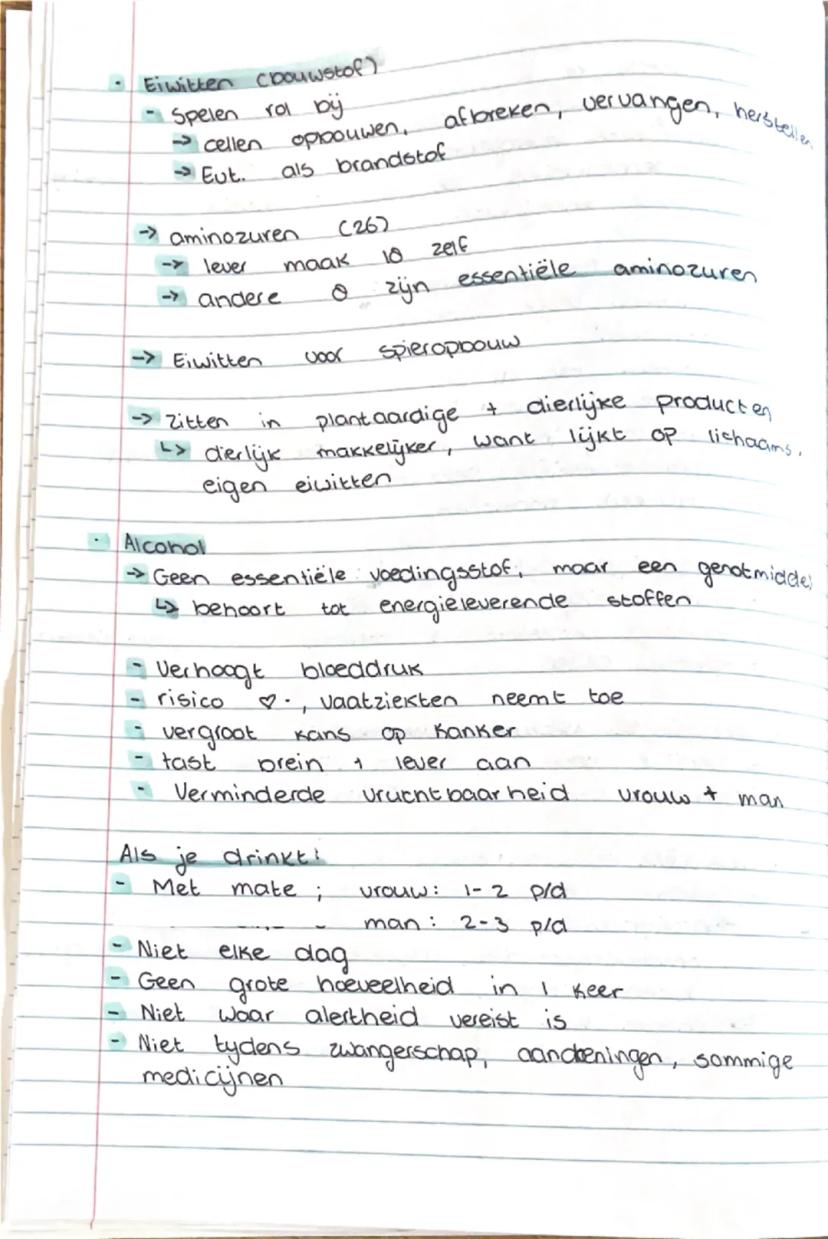 · Eiwitten (bouwstof)
- Spelen rol bij
→ cellen opbouwen, afbreken, vervangen, herstellen
→ Evt. als brandstof
→ aminozuren (26)
→ lever maak 18 zelf
→ andere 8 zijn essentiële aminozuren
→ Eiwitten voor spieropbouw
→ Zitten in plantaardige + dierlijke producten
↳ dierlijk makkelijker, want lijkt op lichaams.
eigen eiwitten
· Alcohol
→ Geen essentiële voedingsstof, maar een genotmiddel
↳ behoort tot energieleverende stoffen
- Verhoogt bloeddruk
- risico ♡ ·, vaatziekten neemt toe
- vergroot kans op kanker
- tast brein + lever aan
- Verminderde vruchtbaarheid vrouw + man
Als je drinkt:
- Met mate ; vrouw: 1-2 p/d
man: 2-3 p/d
- Niet elke dag
- Geen grote hoeveelheid in 1 keer
- Niet waar alertheid vereist is
- Niet tijdens zwangerschap, sommige
medicijnen